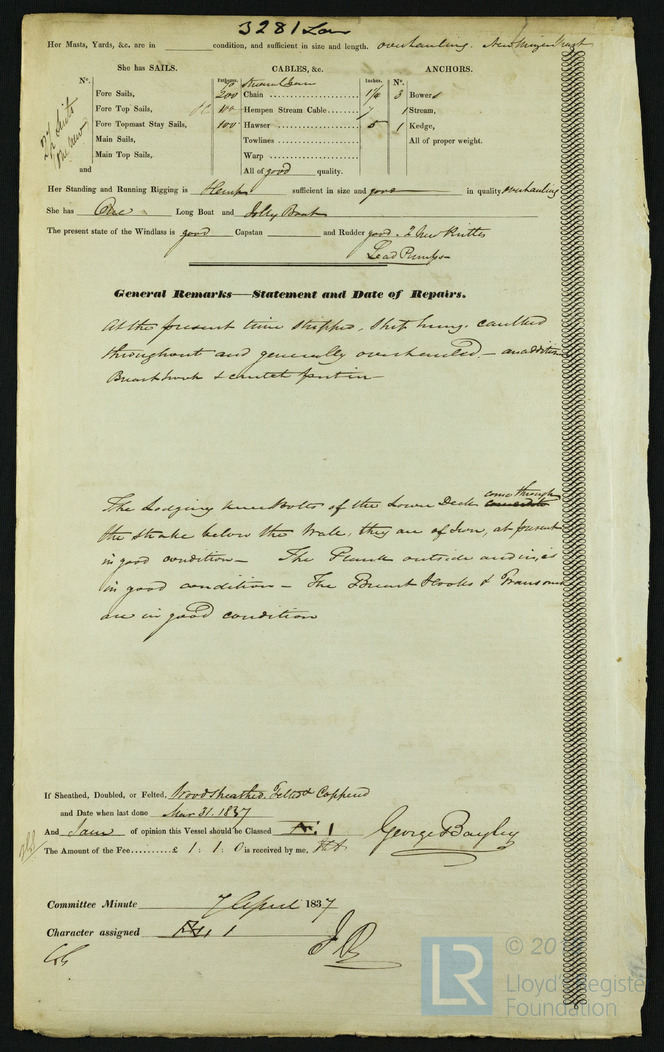 3281 Lon
Her Masts, Yards, &c. are in condition, and sufficient in size and length. overhauling. New Mizen Mast
She has SAILS. CABLES, &c. ANCHORS.
Nº. Fathoms. Inches. Nº.
90 Stream Chain
Fore Sails, 200 Chain 1⅜ 3 Bowers
Fore Top Sails, 100 Hempen Stream Cable 7 1 Stream,
Fore Topmast Stay Sails, 100 Hawser 5 1 Kedge,
Main Sails, Towlines All of proper weight.
Main Top Sails, Warp
and All of good quality.
2½ Suits
one new
Her Standing and Running Rigging is Hemp sufficient in size and good in quality, overhauling
She has One Long Boat and Jolly Boat
The present state of the Windlass is good Capstan and Rudder good. 2 New
Lead Pumps
General Remarks—Statement and Date of Repairs.
At the present time stripped, Ship hung. caulked
throughout and generally overhauled — an addition
Breasthook &
The Lodging knee Bolts of the Lower Deck come through
the Strake below the Wale, they are of Iron, at present
in good condition — The Plank outside and in, is
in good condition — The Breast Hooks & Transoms
are in good condition
If Sheathed, Doubled, or Felted, Woodsheathed, Felted & Coppered
and Date when last done Mar 31. 1837
And I am of opinion this Vessel should be Classed Æ 1 George Bayley
The Amount of the Fee £ 1 : 1 : 0 is received by me,
Committee Minute 7 April 1837
Character assigned Æ 1
LR
© 20
Lloyd's Register
Foundation